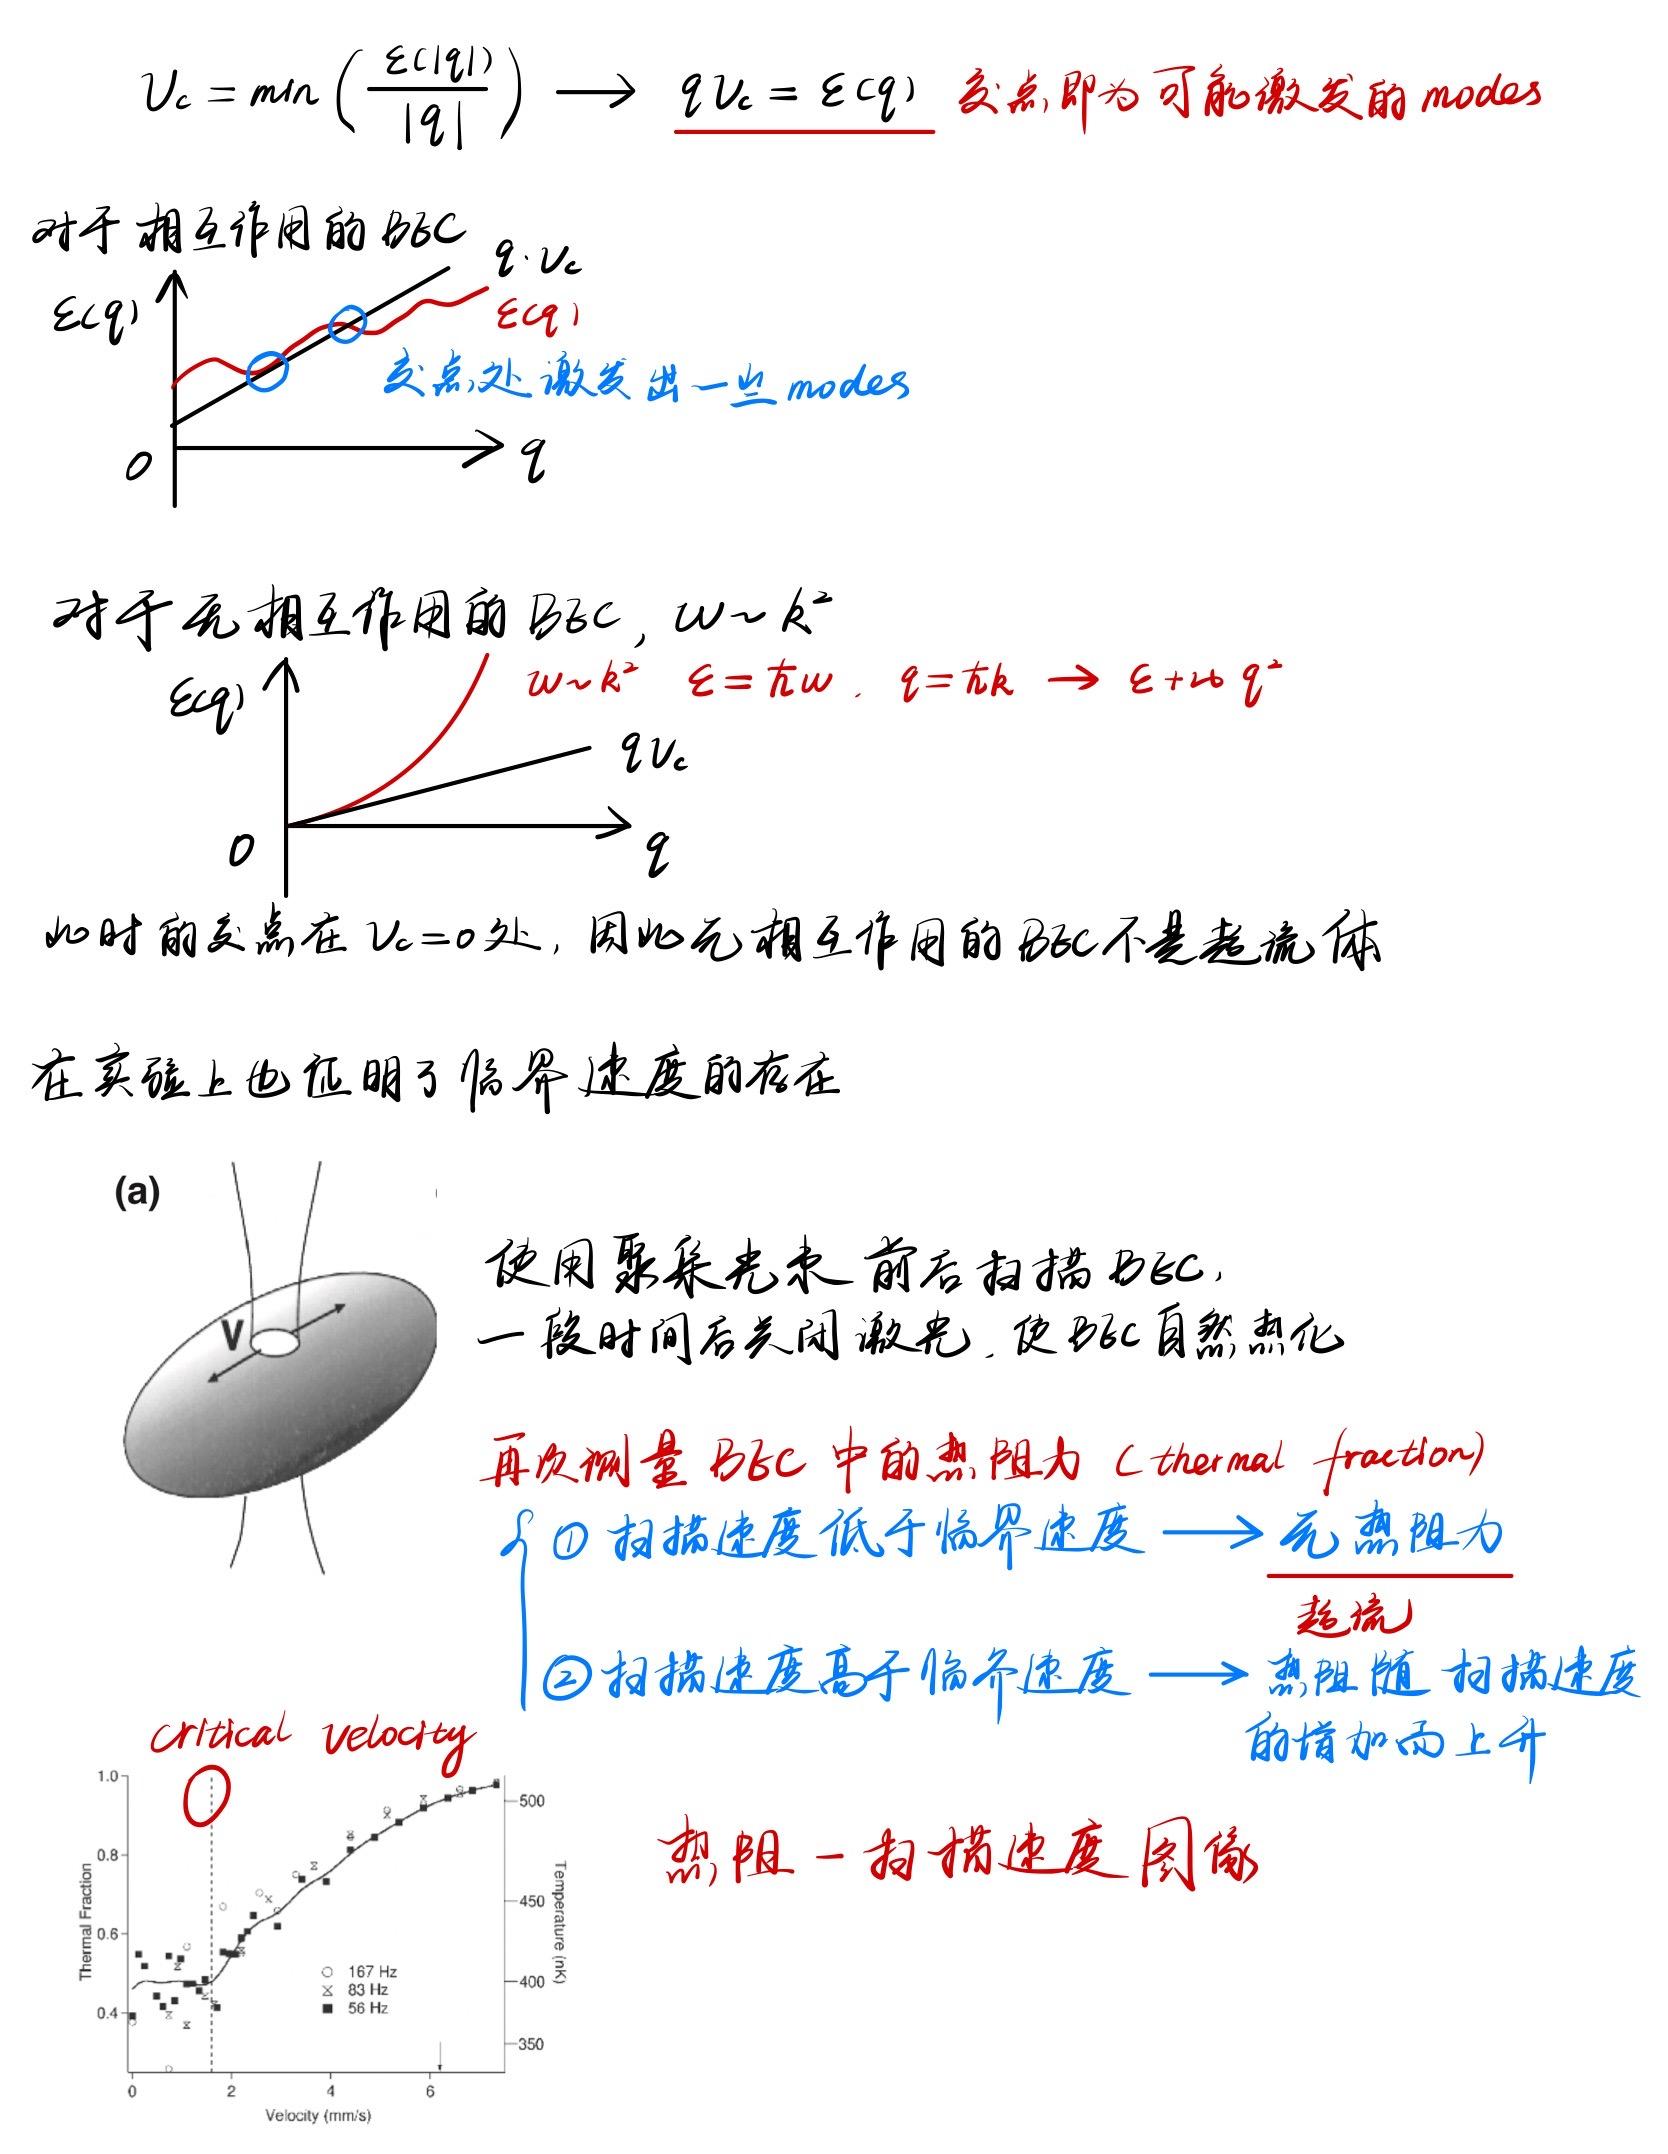 Vc = min ( ε(|q|) / |q| ) → qVc = ε(q) 交点即为可能激发的modes
对于相互作用的BEC
q·Vc
ε(q)
ε(q)
交点处激发出一些modes
0
q
对于无相互作用的BEC, ω~k²
ω~k² ε=ħω. q=ħk → ε正比q²
ε(q)
qVc
0
q
此时的交点在Vc=0处, 因此无相互作用的BEC不是超流体
在实验上也证明了临界速度的存在
(a)
V
使用聚集光束前后扫描BEC,
一段时间后关闭激光, 使BEC自然热化
再次测量BEC中的热阻力 (thermal fraction)
① 扫描速度低于临界速度 → 无热阻力
超流
② 扫描速度高于临界速度 → 热阻随扫描速度
的增加而上升
critical velocity
1.0
0.8
0.6
0.4
Thermal Fraction
500
450
400
350
Temperature (nK)
167 Hz
83 Hz
56 Hz
0 2 4 6
Velocity (mm/s)
热阻-扫描速度图像